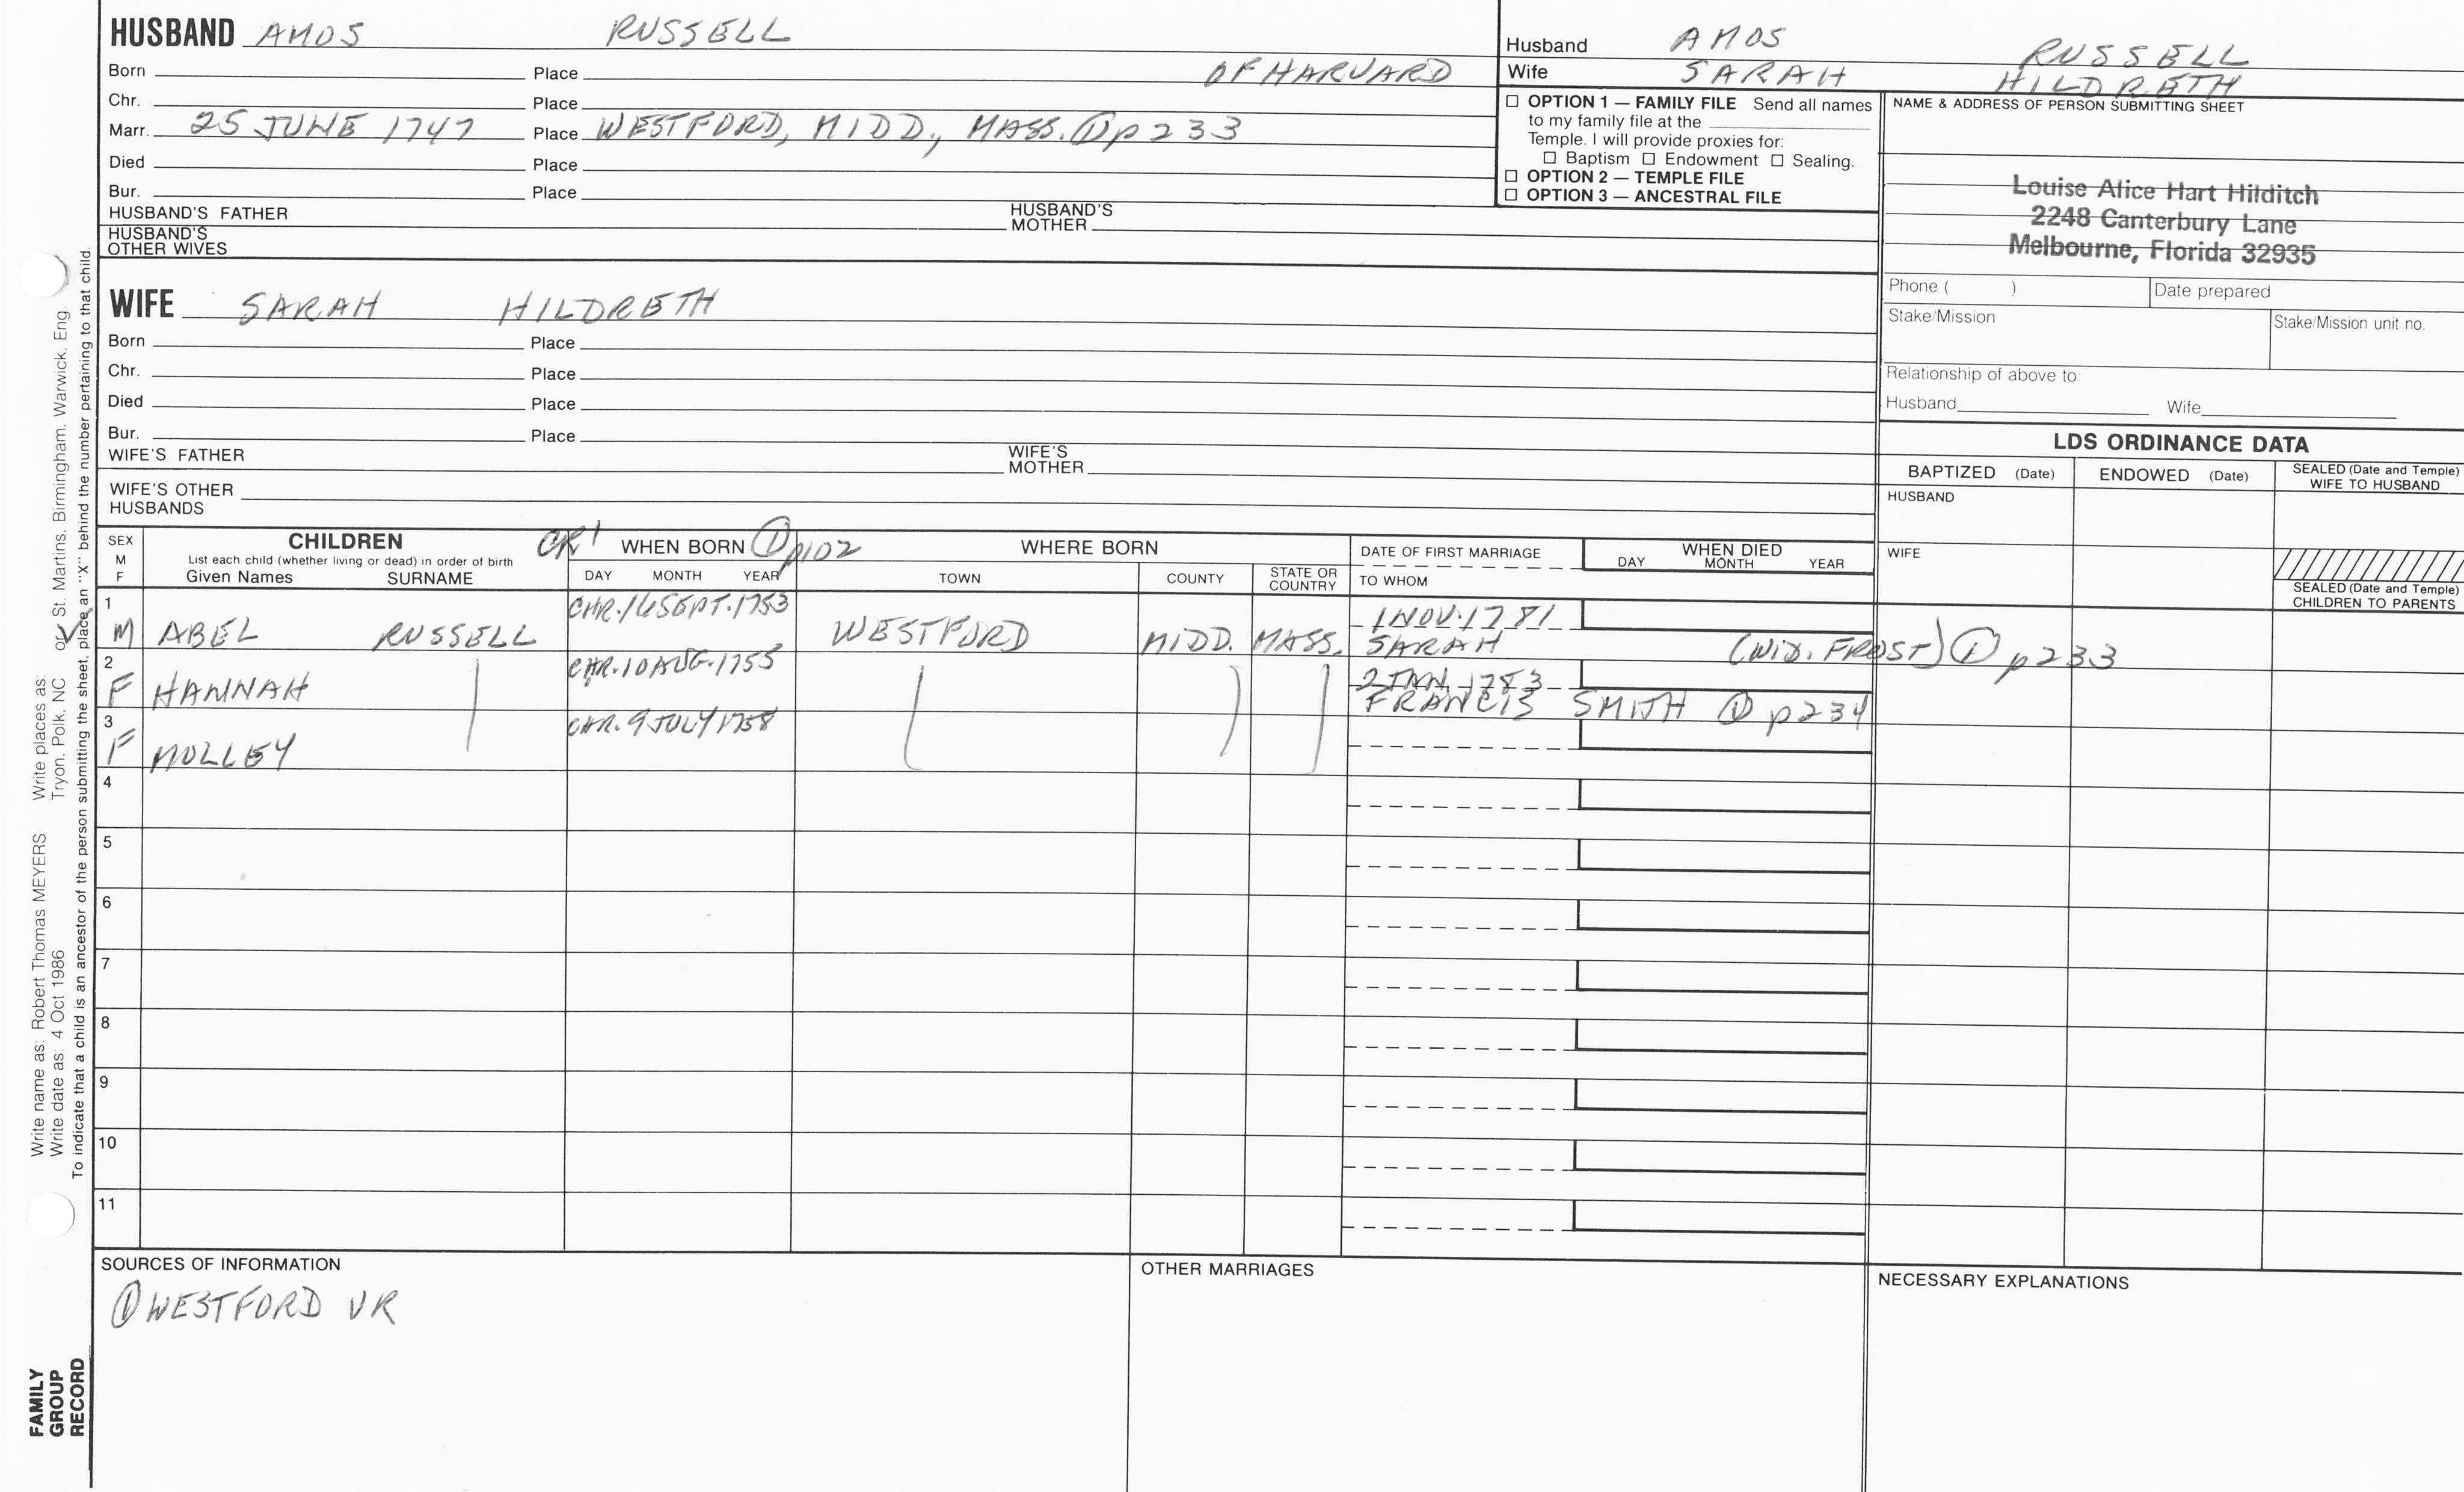 HUSBAND AMOS RUSSELL
Born Place OF HARVARD
Chr. Place
Marr. 25 JUNE 1747 Place WESTFORD, MIDD., MASS. ① p 233
Died Place
Bur. Place
HUSBAND'S FATHER HUSBAND'S MOTHER
HUSBAND'S OTHER WIVES
Husband AMOS RUSSELL
Wife SARAH HILDRETH
☐ OPTION 1 — FAMILY FILE Send all names
to my family file at the
Temple. I will provide proxies for:
☐ Baptism ☐ Endowment ☐ Sealing.
☐ OPTION 2 — TEMPLE FILE
☐ OPTION 3 — ANCESTRAL FILE
NAME & ADDRESS OF PERSON SUBMITTING SHEET
Louise Alice Hart Hilditch
2248 Canterbury Lane
Melbourne, Florida 32935
Phone ( ) Date prepared
Stake/Mission Stake/Mission unit no.
Relationship of above to
Husband Wife
WIFE SARAH HILDRETH
Born Place
Chr. Place
Died Place
Bur. Place
WIFE'S FATHER WIFE'S MOTHER
WIFE'S OTHER HUSBANDS
LDS ORDINANCE DATA
BAPTIZED (Date) ENDOWED (Date) SEALED (Date and Temple) WIFE TO HUSBAND
HUSBAND
WIFE
SEALED (Date and Temple) CHILDREN TO PARENTS
SEX M F
CHILDREN
List each child (whether living or dead) in order of birth
Given Names SURNAME
CR1 WHEN BORN ① p102
DAY MONTH YEAR
WHERE BORN
TOWN COUNTY STATE OR COUNTRY
DATE OF FIRST MARRIAGE
TO WHOM
WHEN DIED
DAY MONTH YEAR
1 M ABEL RUSSELL CHR. 16 SEPT. 1753 WESTFORD MIDD. MASS. 1 NOV. 1781
SARAH (WID. FROST) ① p233
2 F HANNAH CHR. 10 AUG. 1755 2 JAN 1783
FRANCIS SMITH ① p234
3 F MOLLEY CHR. 9 JULY 1758
4
5
6
7
8
9
10
11
SOURCES OF INFORMATION
① WESTFORD VR
OTHER MARRIAGES
NECESSARY EXPLANATIONS
Write name as: Robert Thomas MEYERS Write places as:
Write date as: 4 Oct 1986 Tryon, Polk, NC or St. Martins, Birmingham, Warwick, Eng.
To indicate that a child is an ancestor of the person submitting the sheet, place an "X" behind the number pertaining to that child.
FAMILY
GROUP
RECORD